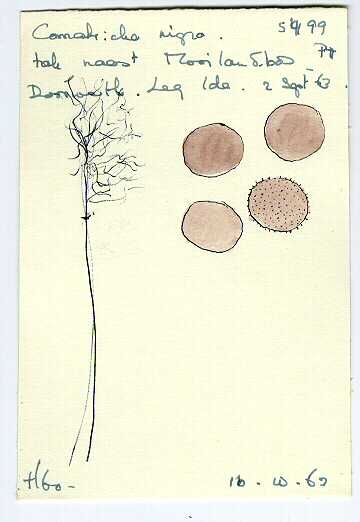 Comatricha nigra. 5499
tak naast Mooiland bos
Doorwerth. Leg Ida. 2 Sept 63
H60-
16.10.63